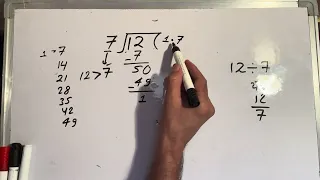 1 - 7
14
21
28
35
42
49
12 > 7
7 ) 12 ( 1.7
- 7
50
- 49
1
12 ÷ 7
12
7